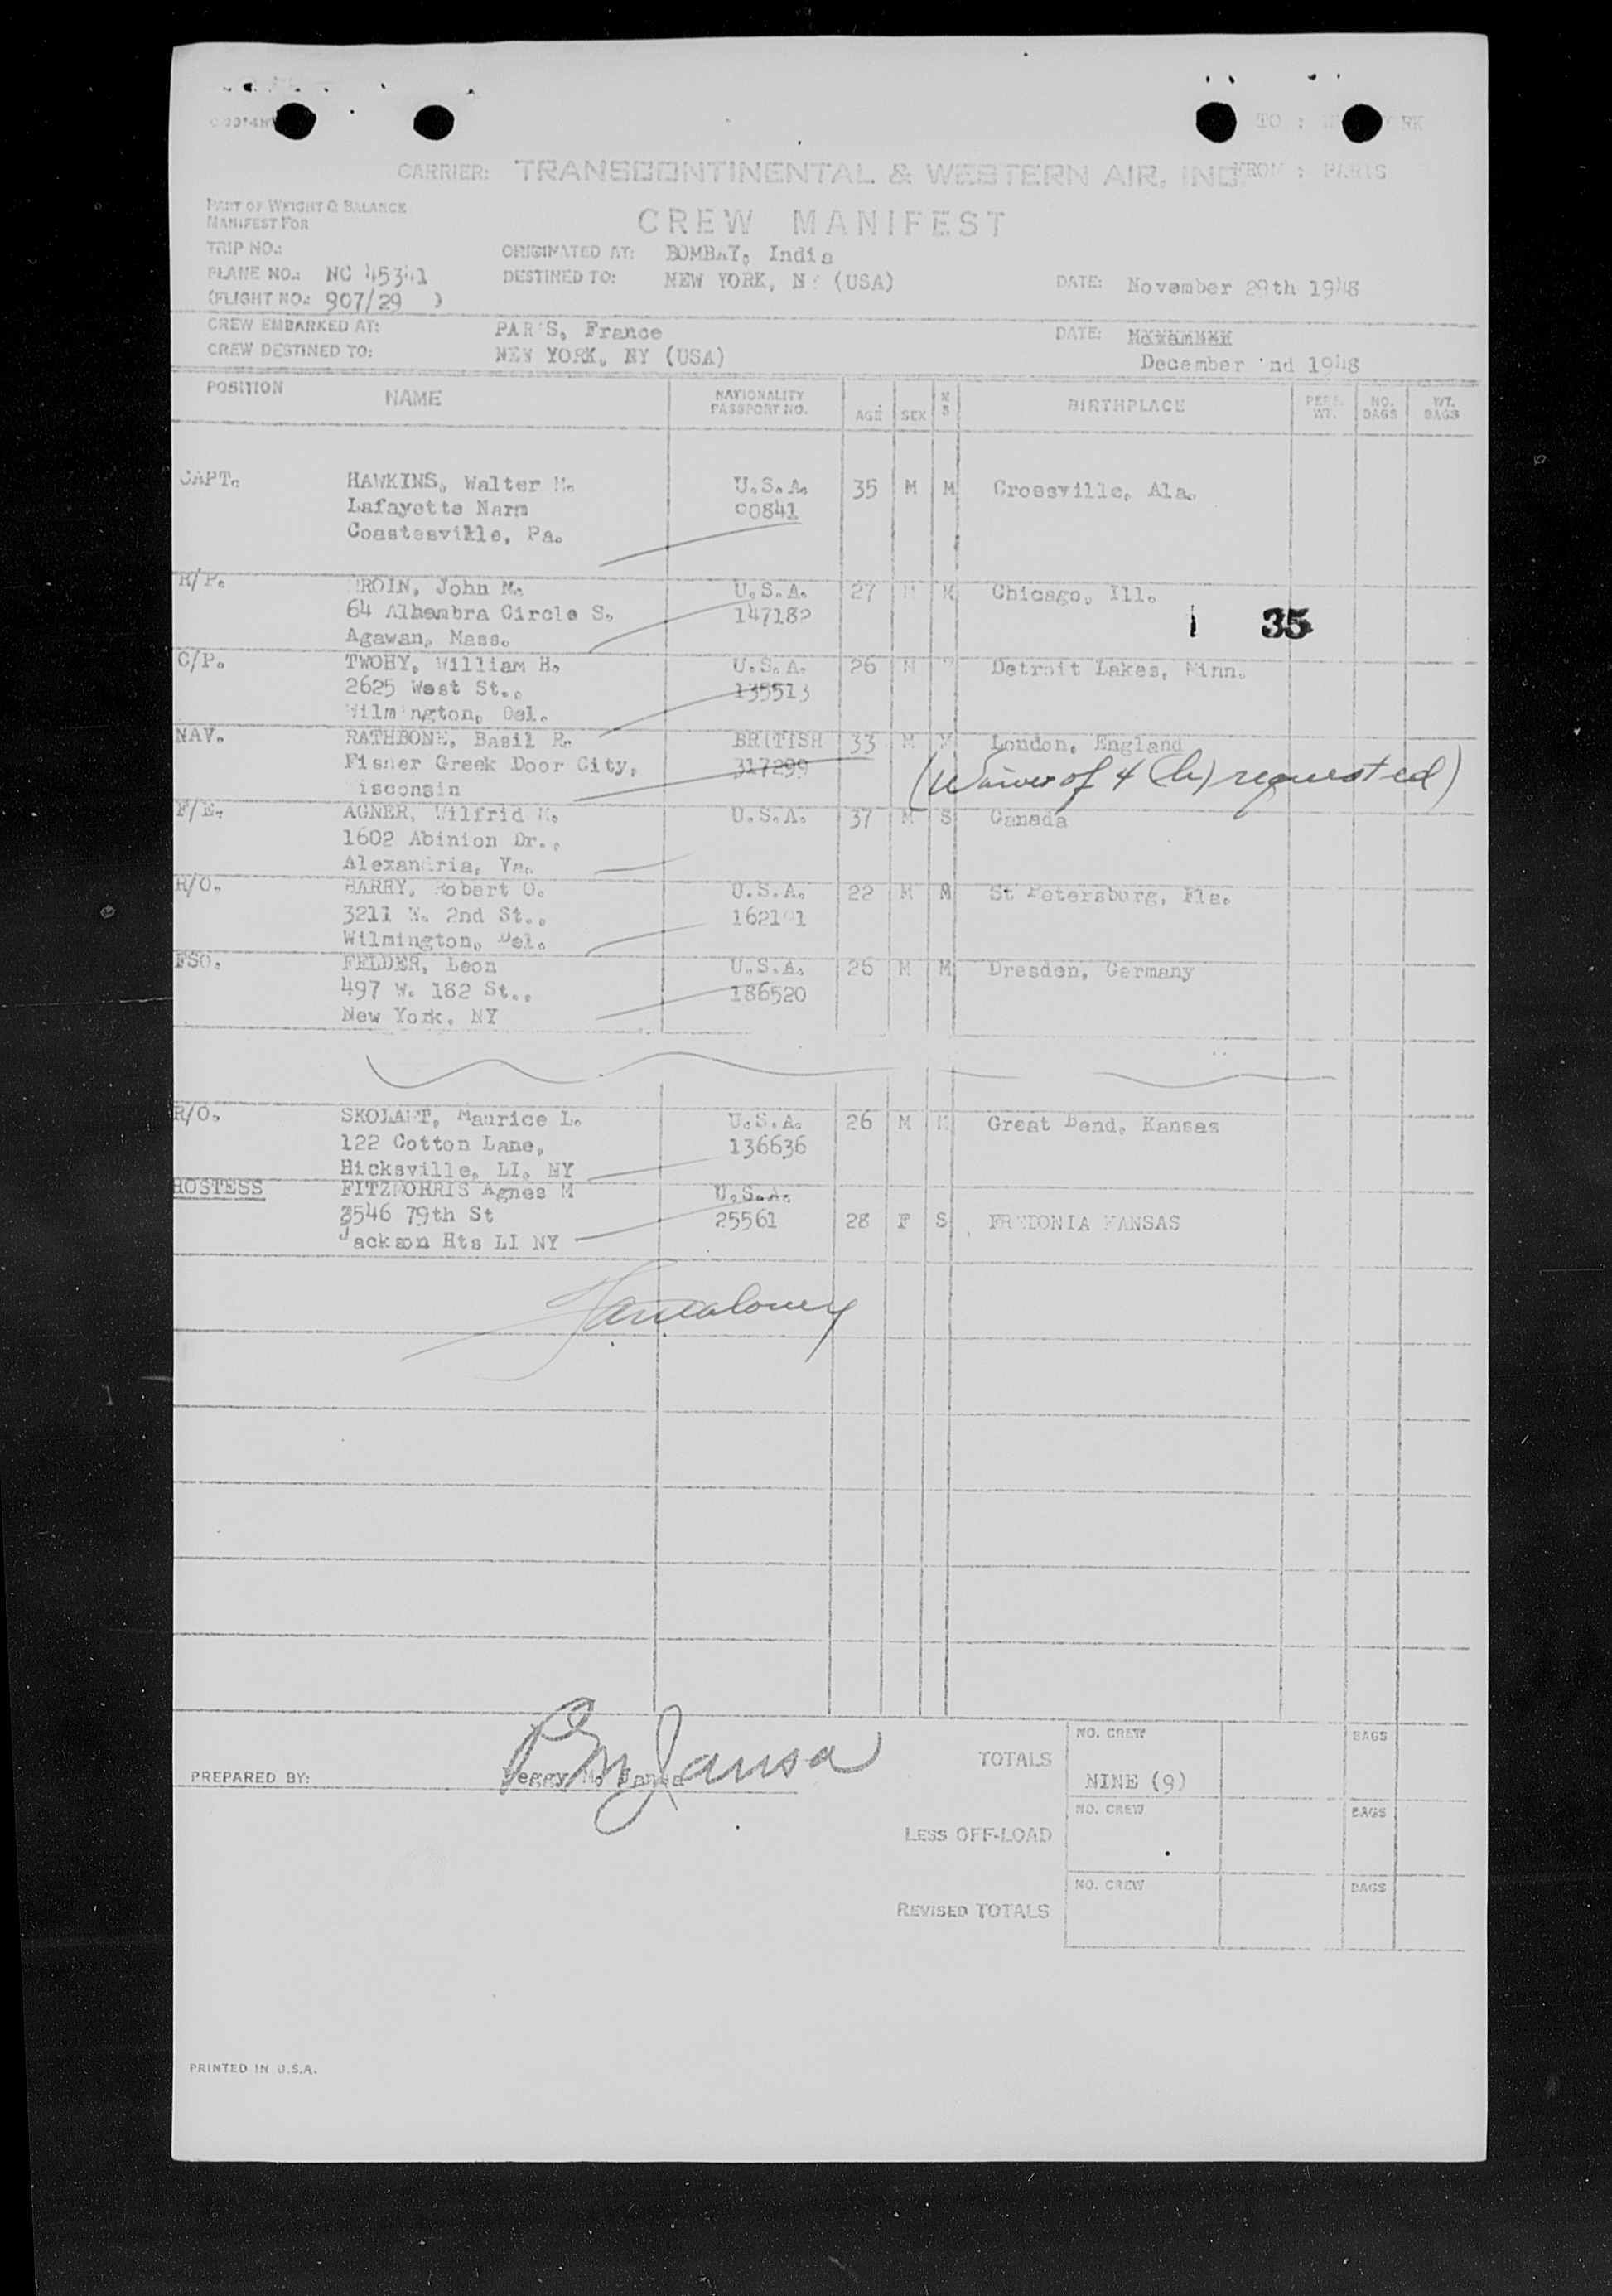 TO : RK
CARRIER: TRANSCONTINENTAL & WESTERN AIR, INC. FROM : PARIS
PART OF WEIGHT & BALANCE
MANIFEST FOR
CREW MANIFEST
TRIP NO.: ORIGINATED AT: BOMBAY, India
PLANE NO.: NC 45341 DESTINED TO: NEW YORK, N (USA) DATE: November 29th 1948
(FLIGHT NO.: 907/29 )
CREW EMBARKED AT: PAR'S, France DATE:
CREW DESTINED TO: NEW YORK, NY (USA) December nd 1948
POSITION NAME NATIONALITY PASSPORT NO. AGE SEX M S BIRTHPLACE PERS. WT. NO. BAGS WT. BAGS
CAPT. HAWKINS, Walter U.S.A. 35 M M Crossville, Ala.
Lafayette Narm 00841
Coastesville, Pa.
R/P. ROIN, John M. U.S.A. 27 M M Chicago, Ill.
64 Alhambra Circle S. 147182 35
Agawan, Mass.
C/P. TWOHY, William H. U.S.A. 26 M Detroit Lakes, Minn.
2625 West St., 135513
Wilmington, Del.
NAV. RATHBONE, Basil R. BRITISH 33 M M London, England
Fisher Greek Door City, 317299 (Waiver of 4 (h) requested)
isconsin
F/E. AGNER, Wilfrid U.S.A. 37 M S Canada
1602 Abinion Dr.,
Alexandria, Va.
R/O. HARRY, Robert O. U.S.A. 22 M M St Petersburg, Fla.
3211 W. 2nd St., 1621 1
Wilmington, Del.
FSO. FELDER, Leon U.S.A. 26 M M Dresden, Germany
497 W. 182 St., 186520
New York, NY
R/O. Maurice L. U.S.A. 26 M M Great Bend, Kansas
122 Cotton Lane, 136636
Hicksville, LI. NY
HOSTESS FITZMORRIS Agnes M U.S.A.
3546 79th St 25561 28 F S FREDONIA KANSAS
Jackson Hts LI NY
PREPARED BY: Peggy M. Jansa
PM Jansa
TOTALS NO. CREW NINE (9) BAGS
LESS OFF-LOAD NO. CREW BAGS
REVISED TOTALS NO. CREW BAGS
PRINTED IN U.S.A.